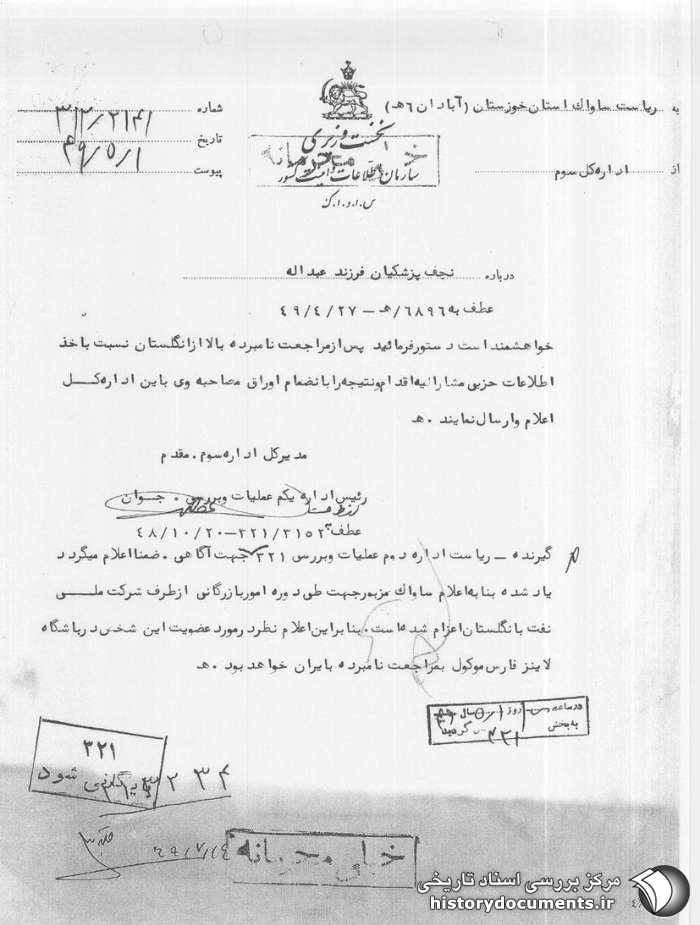 به ریاست ساواك استان خوزستان (آبادان ۶ هـ)
از اداره کل سوم
نخست وزیری
خیلی محرمانه
سازمان اطلاعات و امنیت کشور
س.ا.و.ا.ک
شماره ۳۱۲/۲۱۴۱
تاریخ ۴۹/۵/۱
پیوست
درباره نجف پزشکیان فرزند عبداله
عطف به ۶۸۹۶/هـ - ۴۹/۴/۲۷
خواهشمند است دستور فرمائید پس از مراجعت نامبرده بالا از انگلستان نسبت باخذ
اطلاعات حزبی مشارالیه اقدام ونتیجه را بانضمام اوراق مصاحبه وی باین اداره کل
اعلام وارسال نمایند . هـ
مدیرکل اداره سوم . مقدم
رئیس اداره یکم عملیات وبررسی . جوان
عطف ۳۲۱/۳۱۵۲-۴۸/۱۰/۲۰
گیرنده - ریاست اداره دوم عملیات وبررسی ۳۲۱ جهت آگاهی . ضمنا اعلام میگردد
یاد شده بنا به اعلام ساواك مزبور جهت طی دوره امور بازرگانی ازطرف شرکت ملی
نفت بانگلستان اعزام شده است . بنابراین اعلام نظر درمورد عضویت این شخص در باشگاه
لاینز فارس موکول بمراجعت نامبرده بایران خواهد بود . هـ
در ساعت روز سال
به بخش ۳۲۱ گردید
۳۲۱
بایگانی شود
۳ ۲ ۳ ۴
۴۹/۷/۱۴
خیلی محرمانه
مرکز بررسی اسناد تاریخی
historydocuments.ir